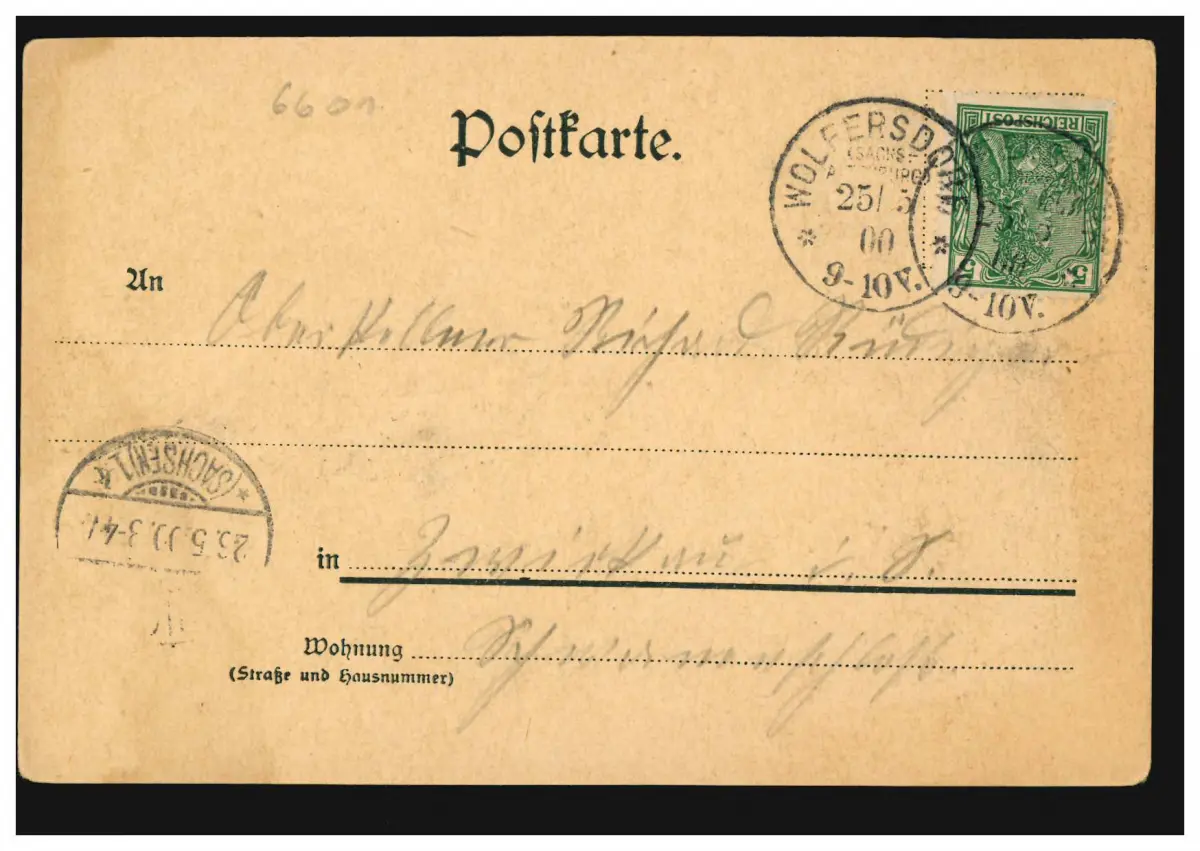 Postkarte.
WOLFERSDORF
(SACHS.-
ALTENBURG)
25/5
00
9-10V.
REICHSPOST
5 5
9-10V.
An Oberkellner Richard
(SACHSEN) 1.
5.00.3-4
in Zwickau i. S.
Wohnung Schwanenschloß.
(Straße und Hausnummer)